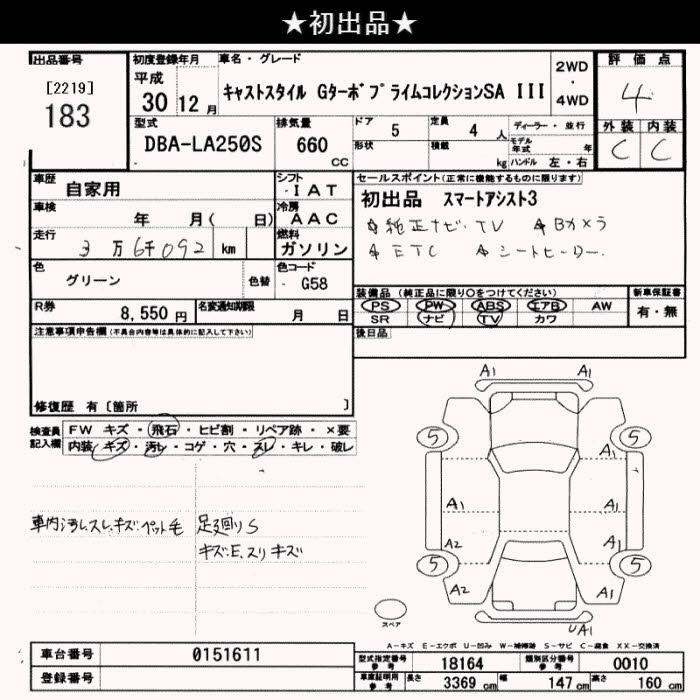 ★初出品★
出品番号
[2219]
183
初度登録年月
平成
30 12 月
車名・グレード
キャストスタイル GターボプライムコレクションSA III
2WD
・
4WD
評価点
4
外装 内装
C C
型式
DBA-LA250S
排気量
660
CC
ドア 5
形状
定員 4 人
積載 kg
ディーラー・並行
モデル年式 年
ハンドル 左・右
車歴 自家用
シフト
・IAT
車検 年 月( 日)
冷房
AAC
走行 3万6千092 km
燃料
ガソリン
セールスポイント(正常に機能するものに限ります)
初出品 スマートアシスト3
☆純正ナビ・TV ☆Bカメラ
☆ETC ☆シートヒーター
色
グリーン
色替
色コード
・G58
R券 8,550 円
名変通知期限 月 日
装備品 (純正品に限り○をつけてください)
PS PW ABS エアB AW
SR ナビ TV カワ
新車保証書
有・無
後日品
注意事項申告欄 (不具合内容等は具体的に記入して下さい)
修復歴 有〔箇所 〕
検査員記入欄
FW キズ・飛石・ヒビ割・リペア跡・×要
内装・キズ・汚レ・コゲ・穴・スレ・キレ・破レ
車内汚レスレ、キズ、ペット毛
足廻りS
キズ、E、スリキズ
A1 A1
5 5
A1
A1 A1
A2 A1
5 5
A2 A1
UA1
スペア
A-キズ E-エクボ U-凹み W-補修跡 S-サビ C-腐食 XX-交換済
車台番号 0151611
登録番号
型式指定番号 参考 18164
類別区分番号 参考 0010
車庫証明用 参考 長さ 3369 cm 幅 147 cm 高さ 160 cm